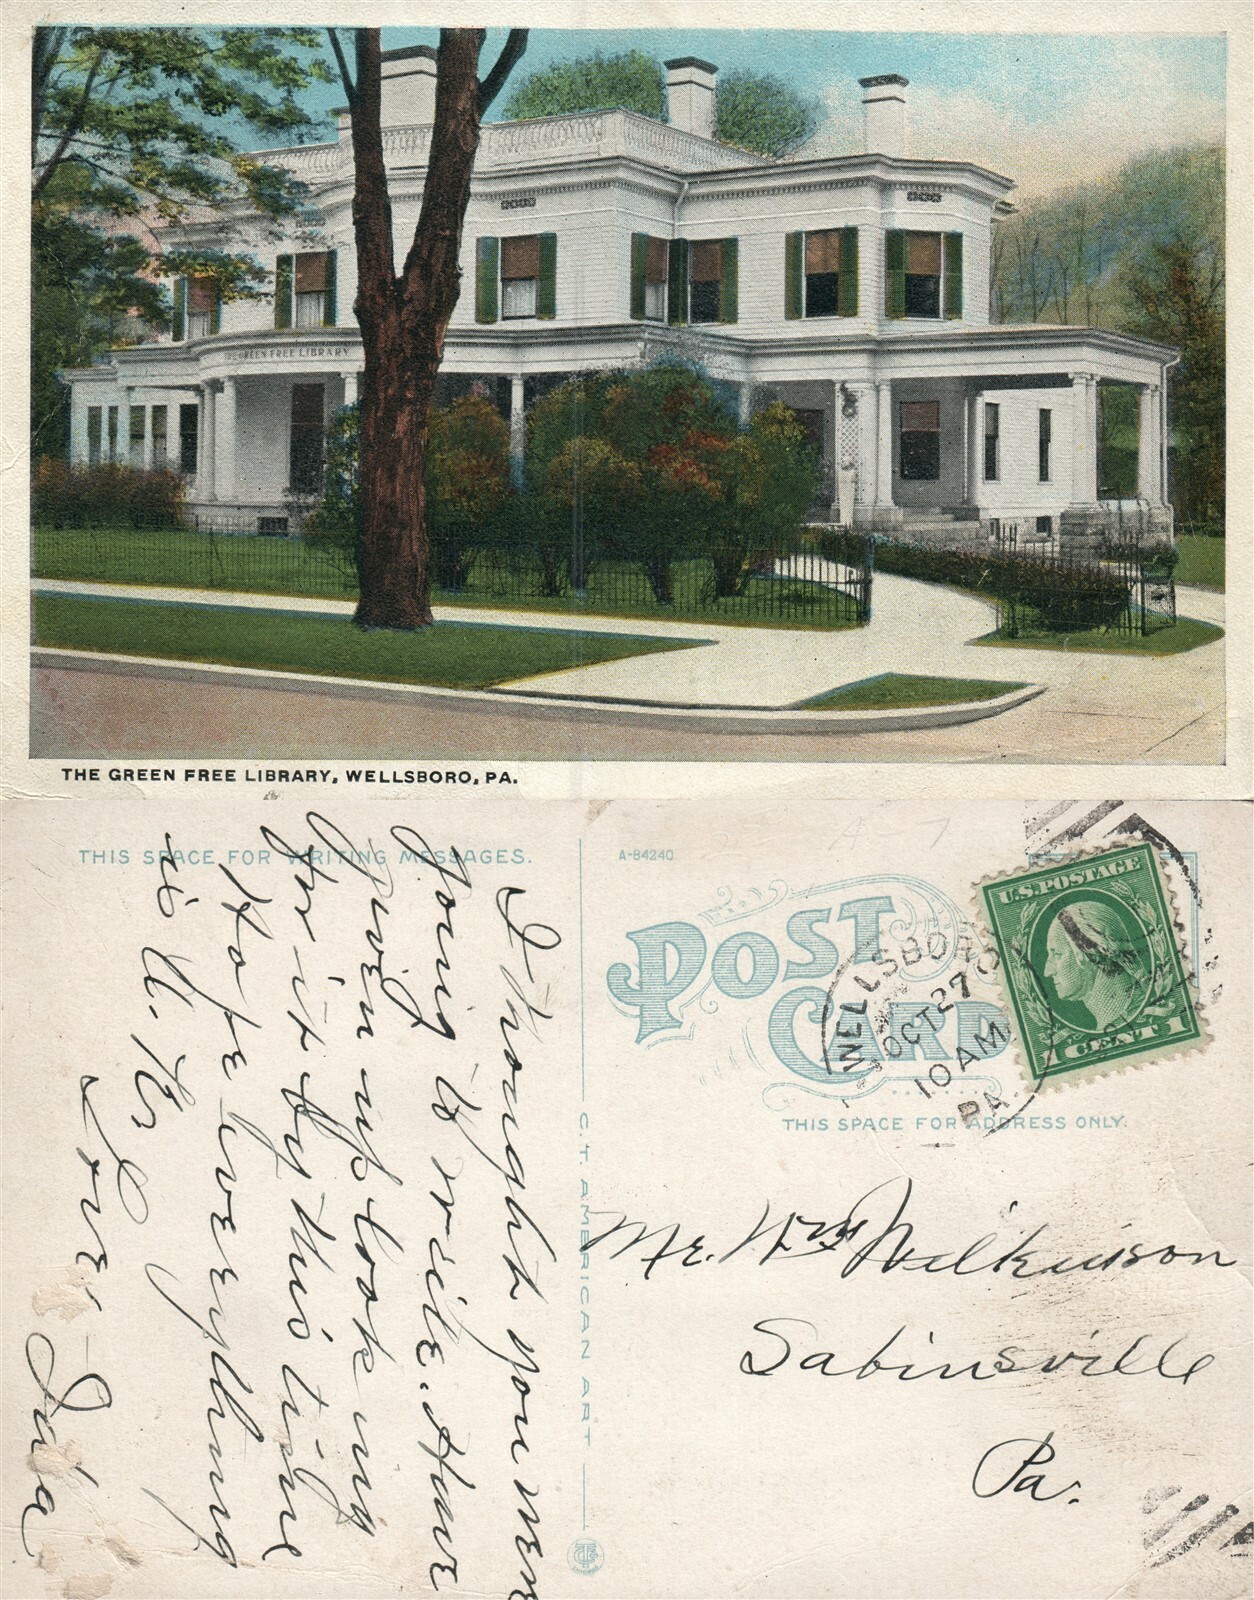 THE GREEN FREE LIBRARY
THE GREEN FREE LIBRARY, WELLSBORO, PA.
THIS SPACE FOR WRITING MESSAGES.
I thought you were
going to write. Have
given up looking
for it by this time
Hope everything
is O.K.
Love - Ida
C.T. AMERICAN ART
A-84240
POST CARD
WELLSBORO
OCT 27
10 AM
PA.
U.S. POSTAGE
1 CENT 1
THIS SPACE FOR ADDRESS ONLY.
Mr. Wm Wilkinson
Sabinsville
Pa.